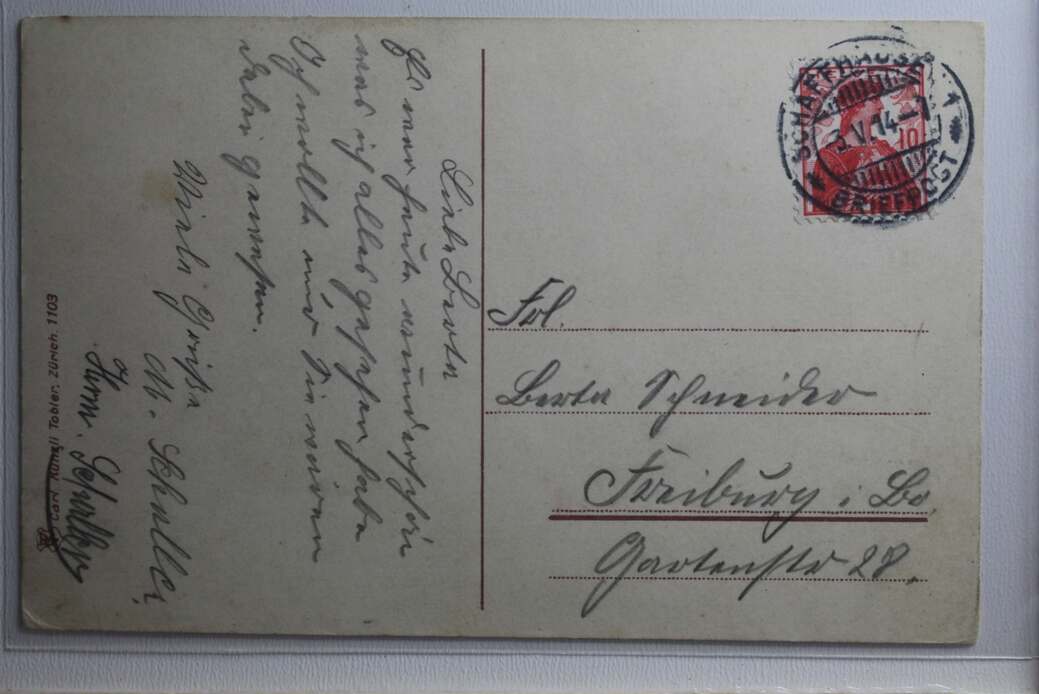 Liebe Berta
Es war heute wunderschön
was ich alles gesehen habe
Ich wollte nur Sie wären
dabei gewesen.
Viele Grüße
M. Schuller
Herm.
Frl.
Berta Schneider
Freiburg i Br.
Gartenstr 28.
SCHAFFHAUSEN
V.14-7
1
BRIEFPOST
10
Carl Künzli Tobler, Zürich. 1103